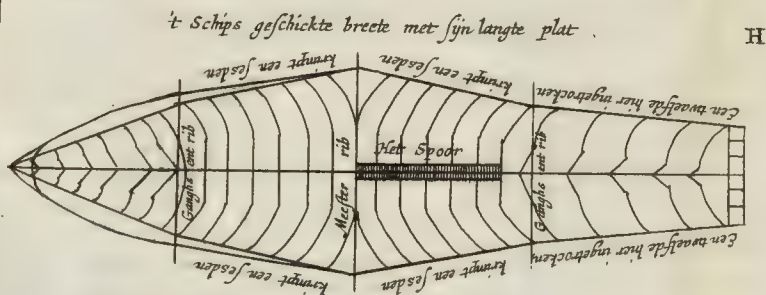 't Schips geschickte breete met sijn langte plat
H
krimpt een sesden
krimpt een sesden
Een twaelfde hier ingetrocken
Ganghs ent rib
Meester rib
Het Spoor
Ganghs ent rib
krimpt een sesden
krimpt een sesden
Een twaelfde hier ingetrocken